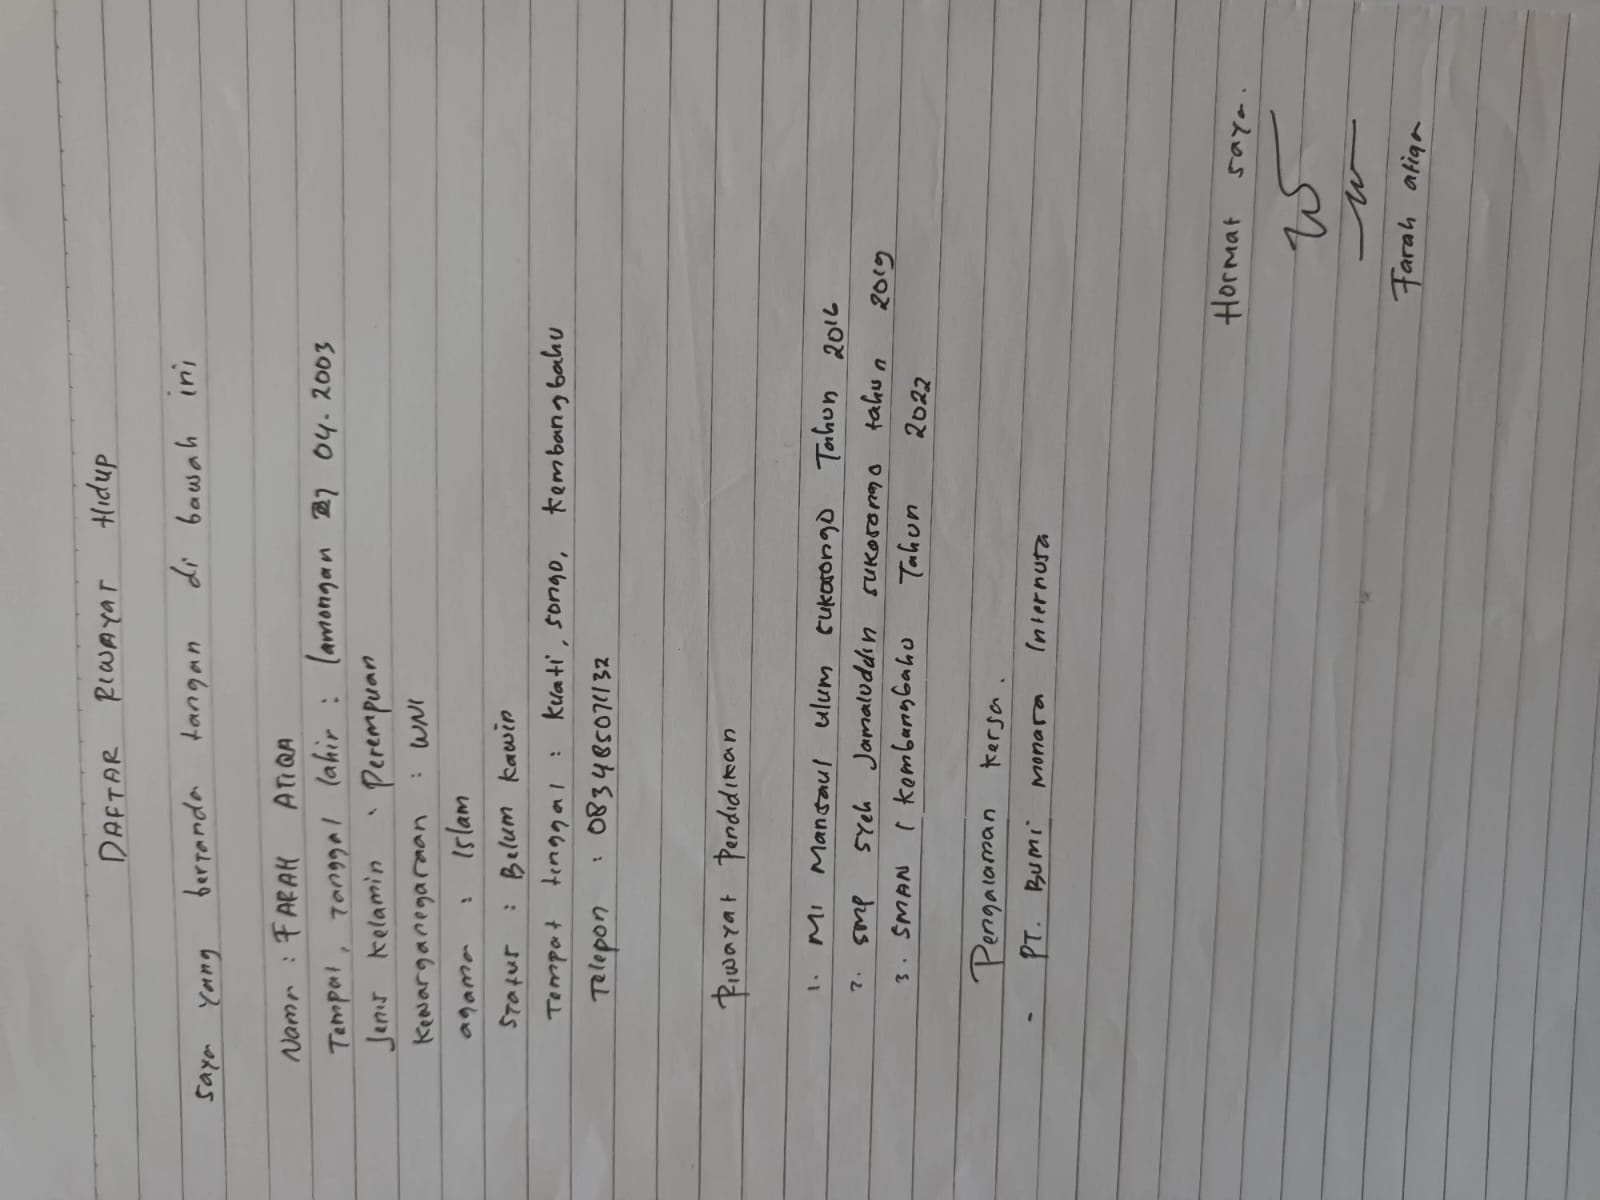 DAFTAR RIWAYAT Hidup
saya yang bertanda tangan di bawah ini
Nama : FARAH ATIQA
Tempat, Tanggal lahir : lamongan 27 04. 2003
Jenis Kelamin : Perempuan
Kewarganegaraan : WNI
agama : Islam
Status : Belum Kawin
Tempat tinggal : kuati, songo, kembangbahu
Telepon :
Riwayat Pendidikan
1. MI Mansaul ulum sukosongo Tahun 2016
2. SMP syeh Jamaluddin sukosongo tahun 2019
3. SMAN 1 Kembangbahu Tahun 2022
Pengalaman kerja.
- PT. Bumi Monara Internusa
Hormat saya.
Farah atiqa